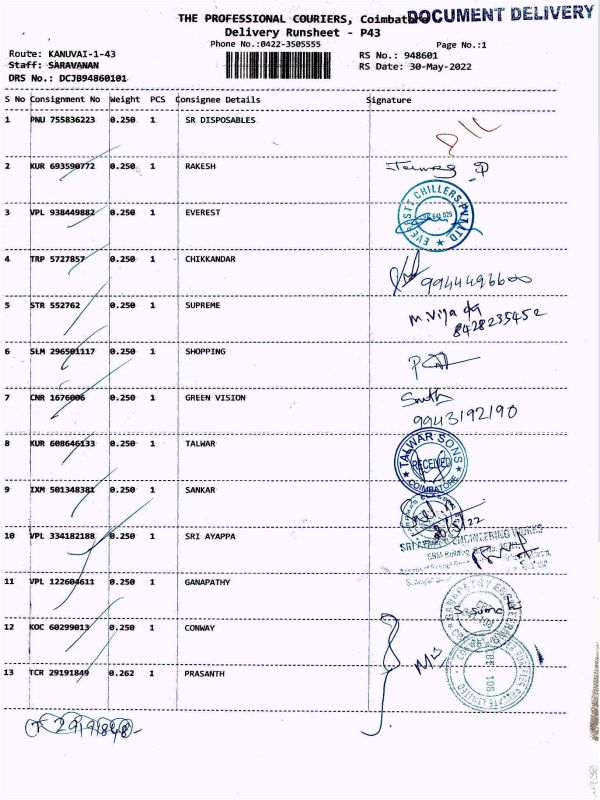 DOCUMENT DELIVERY
THE PROFESSIONAL COURIERS, Coimbatore
Delivery Runsheet - P43
Phone No.:0422-3505555
Page No.:1
Route: KANUVAI-1-43
RS No.: 948601
Staff: SARAVANAN
RS Date: 30-May-2022
DRS No.: DCJB94860101
S No Consignment No Weight PCS Consignee Details Signature
1 PNU 755836223 0.250 1 SR DISPOSABLES
2 KUR 693590772 0.250 1 RAKESH
3 VPL 938449882 0.250 1 EVEREST
EVERESTT CHILLERS PVT LTD
4 TRP 5727857 0.250 1 CHIKKANDAR
9944493600
5 STR 552762 0.250 1 SUPREME
M. Vija
8428235452
6 SLM 296501117 0.250 1 SHOPPING
7 CNR 1676006 0.250 1 GREEN VISION
9943192190
8 KUR 608646133 0.250 1 TALWAR
TALWAR SONS
RECEIVED
COIMBATORE
9 IXM 501348381 0.250 1 SANKAR
10 VPL 334182188 0.250 1 SRI AYAPPA
ENGINEERING WORKS
11 VPL 122604611 0.250 1 GANAPATHY
12 KOC 60299013 0.250 1 CONWAY
13 TCR 29191849 0.262 1 PRASANTH
29191848